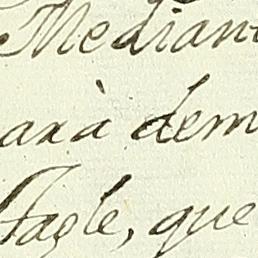 Mediant
axà dem
Tagle, que